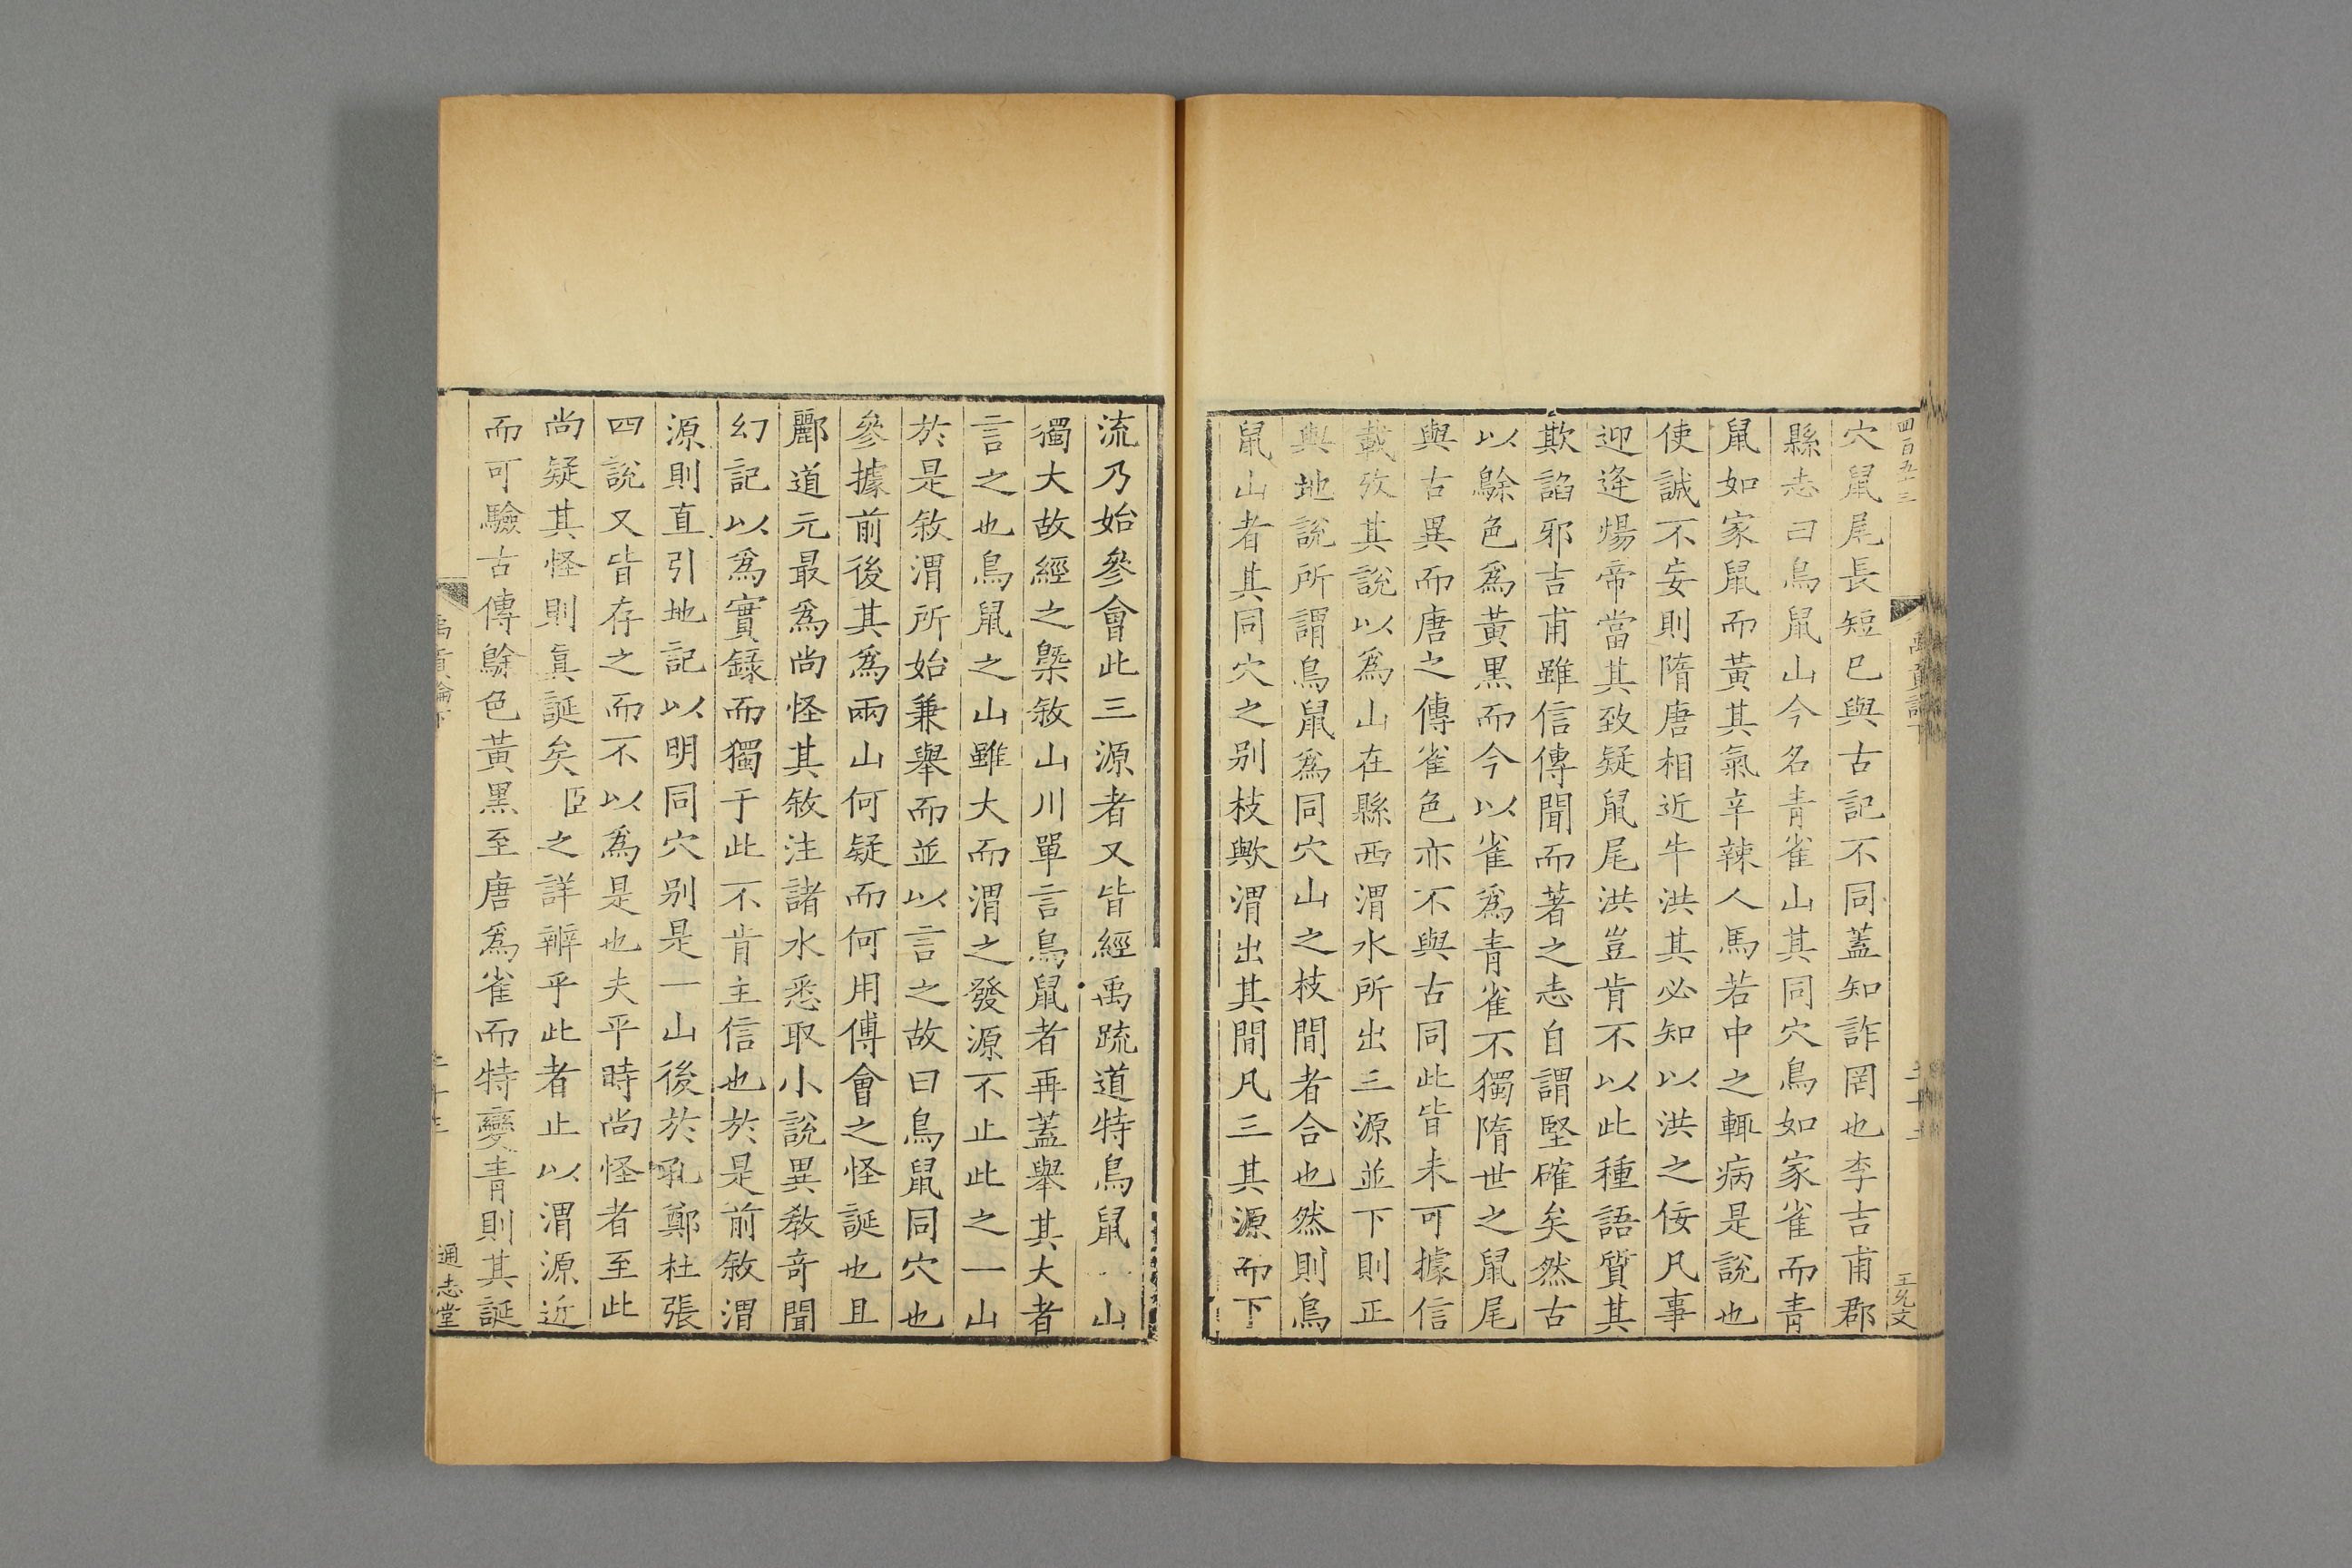 四百五十三
禹貢論下
王允文
穴鼠尾長短已與古記不同蓋知詐罔也李吉甫郡
縣志曰鳥鼠山今名青雀山其同穴鳥如家雀而青
鼠如家鼠而黃其氣辛辣人馬若中之輒病是說也
使誠不妄則隋唐相近牛洪其必知以洪之佞凡事
迎逢煬帝當其致疑鼠尾洪豈肯不以此種語質其
欺諂邪吉甫雖信傳聞而著之志自謂堅確矣然古
以鵌色爲黃黑而今以雀爲青雀不獨隋世之鼠尾
與古異而唐之傳雀色亦不與古同此皆未可據信
載攷其說以爲山在縣西渭水所出三源並下則正
與地說所謂鳥鼠爲同穴山之枝閒者合也然則鳥
鼠山者其同穴之别枝歟渭出其閒凡三其源而下
流乃始參會此三源者又皆經禹疏道特鳥鼠一山
獨大故經之槩敘山川單言鳥鼠者再蓋舉其大者
言之也鳥鼠之山雖大而渭之發源不止此之一山
於是敘渭所始兼舉而並以言之故曰鳥鼠同穴也
參據前後其爲兩山何疑而何用傅會之怪誕也且
酈道元最爲尚怪其敘注諸水悉取小說異教奇聞
幻記以爲實錄而獨于此不肯主信也於是前敘渭
源則直引地記以明同穴别是一山後於孔鄭杜張
四說又皆存之而不以爲是也夫平時尚怪者至此
尚疑其怪則眞誕矣臣之詳辨乎此者止以渭源近
而可驗古傳鵌色黃黑至唐爲雀而特變青則其誕
禹貢論下
通志堂